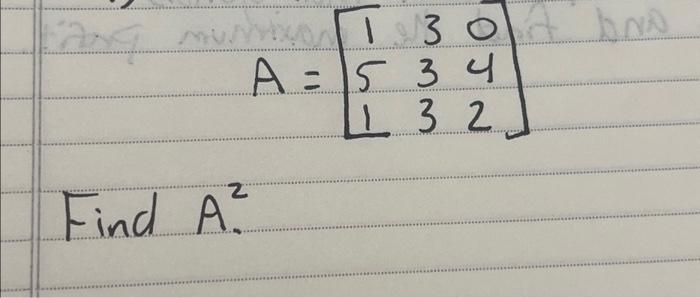 1 3 0
A = 5 3 4
1 3 2
Find A².